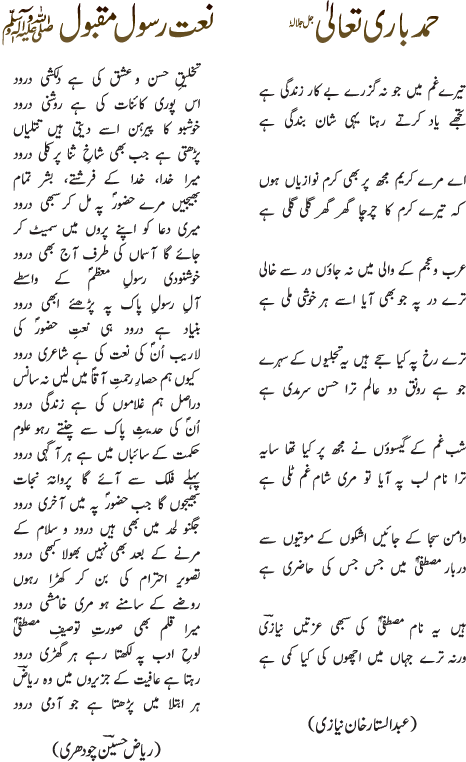 حمد باری تعالیٰ جل جلالہٗ
تیرے غم میں جو نہ گزرے بے کار زندگی ہے
تجھے یاد کرتے رہنا یہی شانِ بندگی ہے
اے مرے کریم مجھ پر بھی کرم نوازیاں ہوں
کہ تیرے کرم کا چرچا گھر گھر گلی گلی ہے
عرب و عجم کے والی میں نہ جاؤں در سے خالی
ترے در پہ جو بھی آیا اسے ہر خوشی ملی ہے
ترے رخ پہ کیا سجے ہیں یہ تجلیوں کے سہرے
جو ہے رونقِ دو عالم ترا حسن سرمدی ہے
شبِ غم کے گیسوؤں نے مجھ پر کیا تھا سایہ
ترا نام لب پہ آیا تو مری شامِ غم ٹلی ہے
دامن سجا کے جائیں اشکوں کے موتیوں سے
دربارِ مصطفیؐ میں جس جس کی حاضری ہے
ہیں یہ نام مصطفیؐ کی سبھی عزتیں نیازیؔ
ورنہ ترے جہاں میں اچھوں کی کیا کمی ہے
(عبدالستار خان نیازی)
نعت رسول مقبول صلی اللہ علیہ وآلہ وسلم
تخلیقِ حسن و عشق کی ہے دلکشی درود
اس پوری کائنات کی ہے روشنی درود
خوشبو کا پیرہن اسے دیتی ہیں تتلیاں
پڑھتی ہے جب بھی شاخِ ثنا پر کلی درود
میرا خدا، خدا کے فرشتے، بشر تمام
بھیجیں مرے حضورؐ پہ مل کر سبھی درود
میری دعا کو اپنے پروں میں سمیٹ کر
جائے گا آسماں کی طرف آج بھی درود
خوشنودیِ رسولِ معظمؐ کے واسطے
آلِ رسولِ پاک پہ پڑھیئے ابھی درود
بنیاد ہے درود ہی نعتِ حضورؐ کی
لاریب اُنؐ کی نعت کی ہے شاعری درود
کیوں ہم حصارِ رحمتِ آقاؐ میں لیں نہ سانس
دراصل ہم غلاموں کی ہے زندگی درود
اُنؐ کی حدیثِ پاک سے چنتے رہو علوم
حکمت کے سائباں میں ہے ہر آگہی درود
پہلے فلک سے آئے گا پروانۂ نجات
بھیجوں گا جب حضورؐ پہ میں آخری درود
جگنو لحد میں بھی ہیں درود و سلام کے
مرنے کے بعد بھی نہیں بھولا کبھی درود
تصویرِ احترام کی بن کر کھڑا رہوں
روضے کے سامنے ہو مری خامشی درود
میرا قلم بھی صورتِ توصیفِ مصطفیؐ
لوحِ ادب پہ لکھتا رہے ہر گھڑی درود
رہتا ہے عافیت کے جزیروں میں وہ ریاضؔ
ہر ابتلا میں پڑھتا ہے جو آدمی درود
(ریاض حسین چودھری)